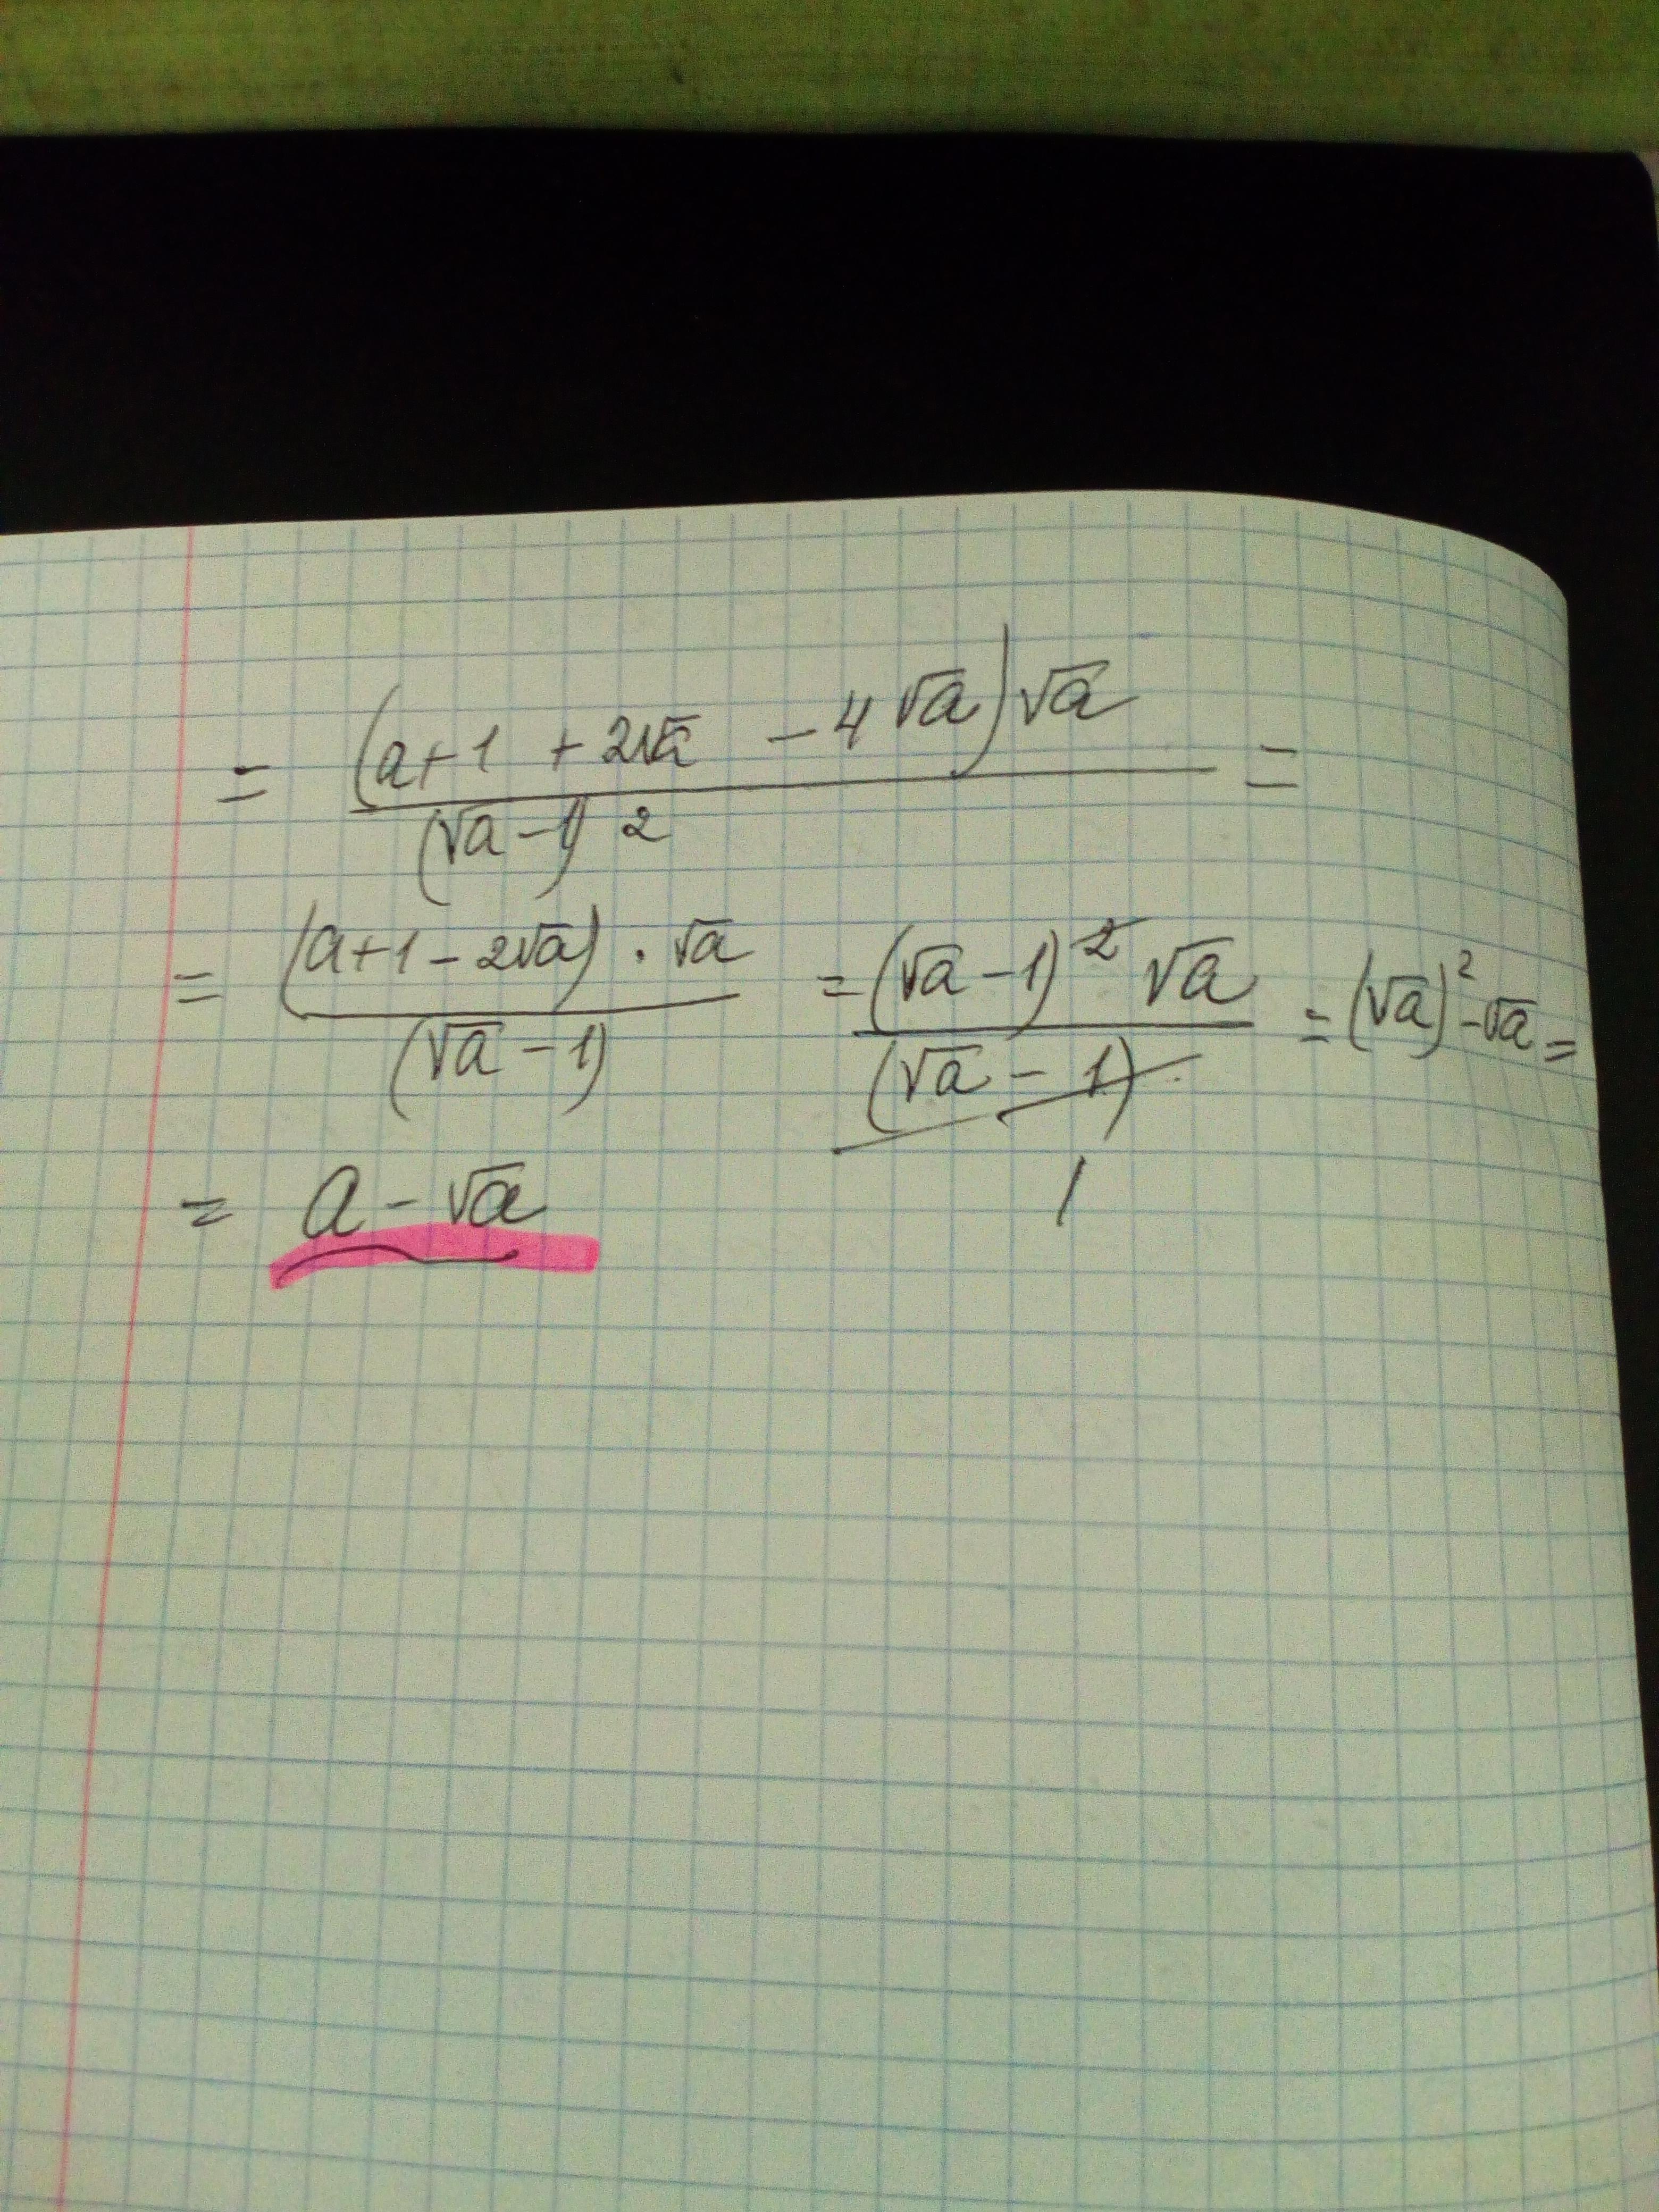 = (a+1 +2√a -4√a)√a / (√a-1) 2 =
= (a+1-2√a) · √a / (√a-1) = (√a-1)² √a / (√a-1) = (√a)²-√a =
1
= a-√a